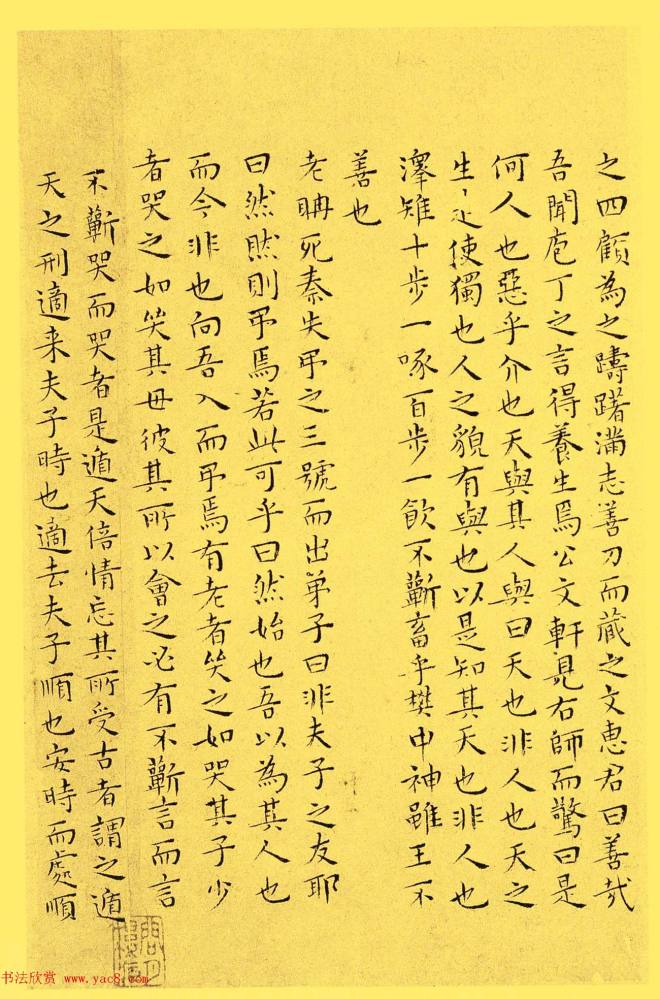 之四顧為之躊躇滿志善刀而藏之文惠君曰善哉
吾聞庖丁之言得養生焉公文軒見右師而驚曰是
何人也惡乎介也天與其人與曰天也非人也天之
生〻是使獨也人之貌有與也以是知其天也非人也
澤雉十步一啄百步一飲不蘄畜乎樊中神雖王不
善也
老聃死秦失弔之三號而出弟子曰非夫子之友耶
曰然然則弔焉若此可乎曰然始也吾以為其人也
而今非也向吾入而弔焉有老者哭之如哭其子少
者哭之如哭其母彼其所以會之必有不蘄言而言
不蘄哭而哭者是遁天倍情忘其所受古者謂之遁
天之刑適来夫子時也適去夫子順也安時而處順
书法欣赏 www.yac8.com